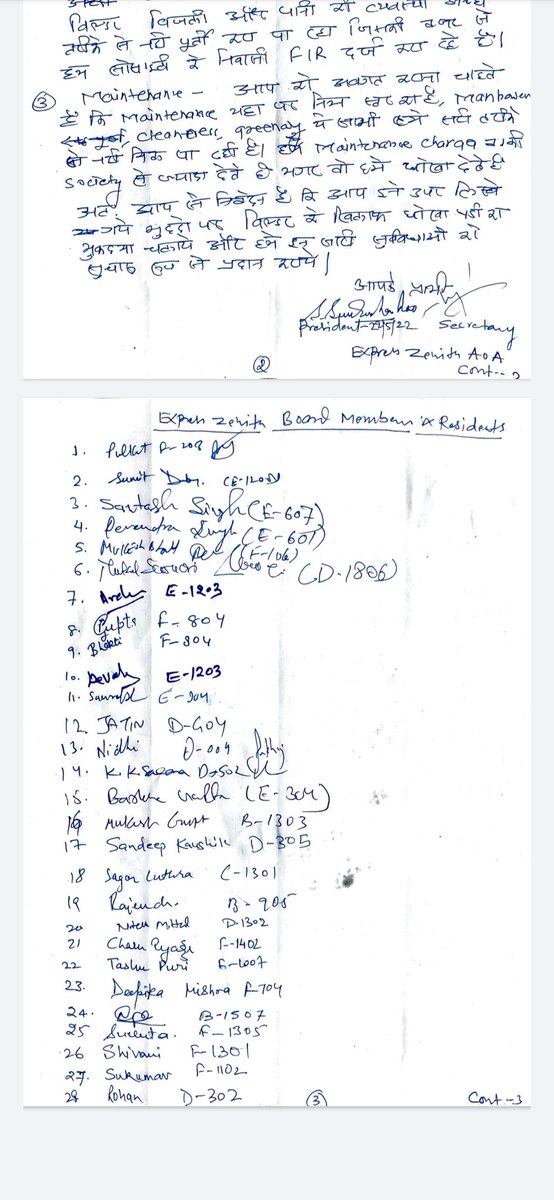 बिल्डर बिजली और पानी की व्यवस्था
तरीके से नहीं पूर्ती कर पा रहा जिसकी वजह से
हम सोसाइटी के निवासी FIR दर्ज करा रहे हैं।
③ Maintenance - आप को अवगत कराना चाहते
हैं कि Maintenance यहा पर निम्न स्तर का है, Manpower
cleanness, greenary ये सभी हमे सही तरीके
से नहीं मिल पा रही है। Maintenance charge बाकी
Society से ज्यादा देते है मगर वो हमे धोखा देते है
अतः आप से निवेदन है कि आप इन उपर लिखे
गये मुद्दो पर बिल्डर के खिलाफ धोखा धड़ी का
मुकदमा चलाये और हमे इन सभी सुविधाओ को
सुचारू रूप से प्रदान कराये।
आपके प्रार्थी
President 22/5/22 Secretary
Express Zenith AOA
② Cont..
Express Zenith Board Members & Residents
1. Pulkit 208
2. Sumit (E-1205)
3. Santosh Singh (E-607)
4. Devendra Singh (E-601)
5. Mukesh Bhatt (F-106)
6. (D-1806)
7. E-1203
8. Gupta F-804
9. Bhakti F-804
10. E-1203
11. E-904
12 JATIN D-404
13. Nidhi D-004
14. K.K D-502
15. (E-304)
16 Mukesh Gupt B-1303
17 Sandeep Kaushik D-305
18 Sagar Luthra C-1301
19 Rajendr. B-905
20 Nitin Mittal D-1302
21 Charu Tyagi F-1402
22 Tashu Puri 1007
23. Deepika Mishra F-704
24. B-1507
25 Sucheta. F-1305
26 Shivani F-1301
27. Sukumar F-1102
28 Rohan D-302
③ Cont-3